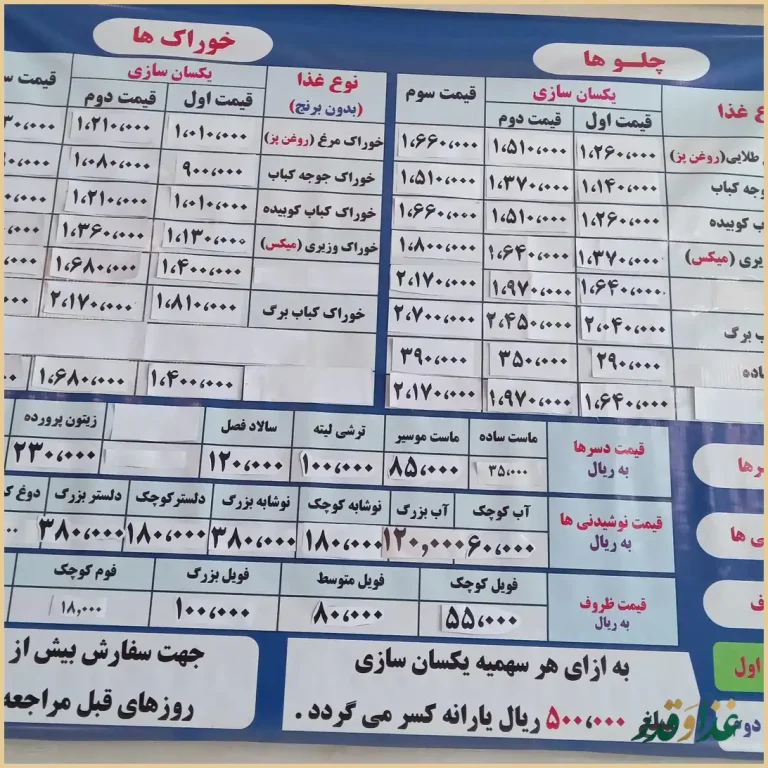 چلـو ها
یکسان سازی
قیمت اول
قیمت دوم
قیمت سوم
طلایی (روغن پز) ۱،۲۶۰،۰۰۰ ۱،۵۱۰،۰۰۰ ۱،۶۶۰،۰۰۰
کباب ۱،۱۴۰،۰۰۰ ۱،۳۷۰،۰۰۰ ۱،۵۱۰،۰۰۰
کوبیده ۱،۲۶۰،۰۰۰ ۱،۵۱۰،۰۰۰ ۱،۶۶۰،۰۰۰
(میکس) ۱،۳۷۰،۰۰۰ ۱،۶۴۰،۰۰۰ ۱،۸۰۰،۰۰۰
۱،۶۴۰،۰۰۰ ۱،۹۷۰،۰۰۰ ۲،۱۷۰،۰۰۰
برگ ۲،۰۴۰،۰۰۰ ۲،۴۵۰،۰۰۰ ۲،۷۰۰،۰۰۰
۲۹۰،۰۰۰ ۳۵۰،۰۰۰ ۳۹۰،۰۰۰
۱،۶۴۰،۰۰۰ ۱،۹۷۰،۰۰۰ ۲،۱۷۰،۰۰۰
خوراک ها
نوع غذا
(بدون برنج)
یکسان سازی
قیمت اول
قیمت دوم
قیمت
خوراک مرغ (روغن پز) ۱،۰۱۰،۰۰۰ ۱،۲۱۰،۰۰۰
خوراک جوجه کباب ۹۰۰،۰۰۰ ۱،۰۸۰،۰۰۰
خوراک کباب کوبیده ۱،۰۱۰،۰۰۰ ۱،۲۱۰،۰۰۰
خوراک وزیری (میکس) ۱،۱۳۰،۰۰۰ ۱،۳۶۰،۰۰۰
۱،۴۰۰،۰۰۰ ۱،۶۸۰،۰۰۰
خوراک کباب برگ ۱،۸۱۰،۰۰۰ ۲،۱۷۰،۰۰۰
۱،۴۰۰،۰۰۰ ۱،۶۸۰،۰۰۰
قیمت دسرها
به ریال
ماست ساده ماست موسیر ترشی لیته سالاد فصل زیتون پرورده
۳۵،۰۰۰ ۸۵،۰۰۰ ۱۰۰،۰۰۰ ۱۲۰،۰۰۰ ۲۳۰،۰۰۰
قیمت نوشیدنی ها
به ریال
آب کوچک آب بزرگ نوشابه کوچک نوشابه بزرگ دلستر کوچک دلستر بزرگ دوغ
۶۰،۰۰۰ ۱۲۰,۰۰۰ ۱۸۰،۰۰۰ ۳۸۰،۰۰۰ ۱۸۰،۰۰۰ ۳۸۰،۰۰۰
قیمت ظروف
به ریال
فویل کوچک فویل متوسط فویل بزرگ فوم کوچک
۵۵،۰۰۰ ۸۰،۰۰۰ ۱۰۰،۰۰۰ ۱۸,۰۰۰
اول
به ازای هر سهمیه یکسان سازی
مبلغ ۵۰۰،۰۰۰ ریال یارانه کسر می گردد .
جهت سفارش بیش از
روزهای قبل مراجعه